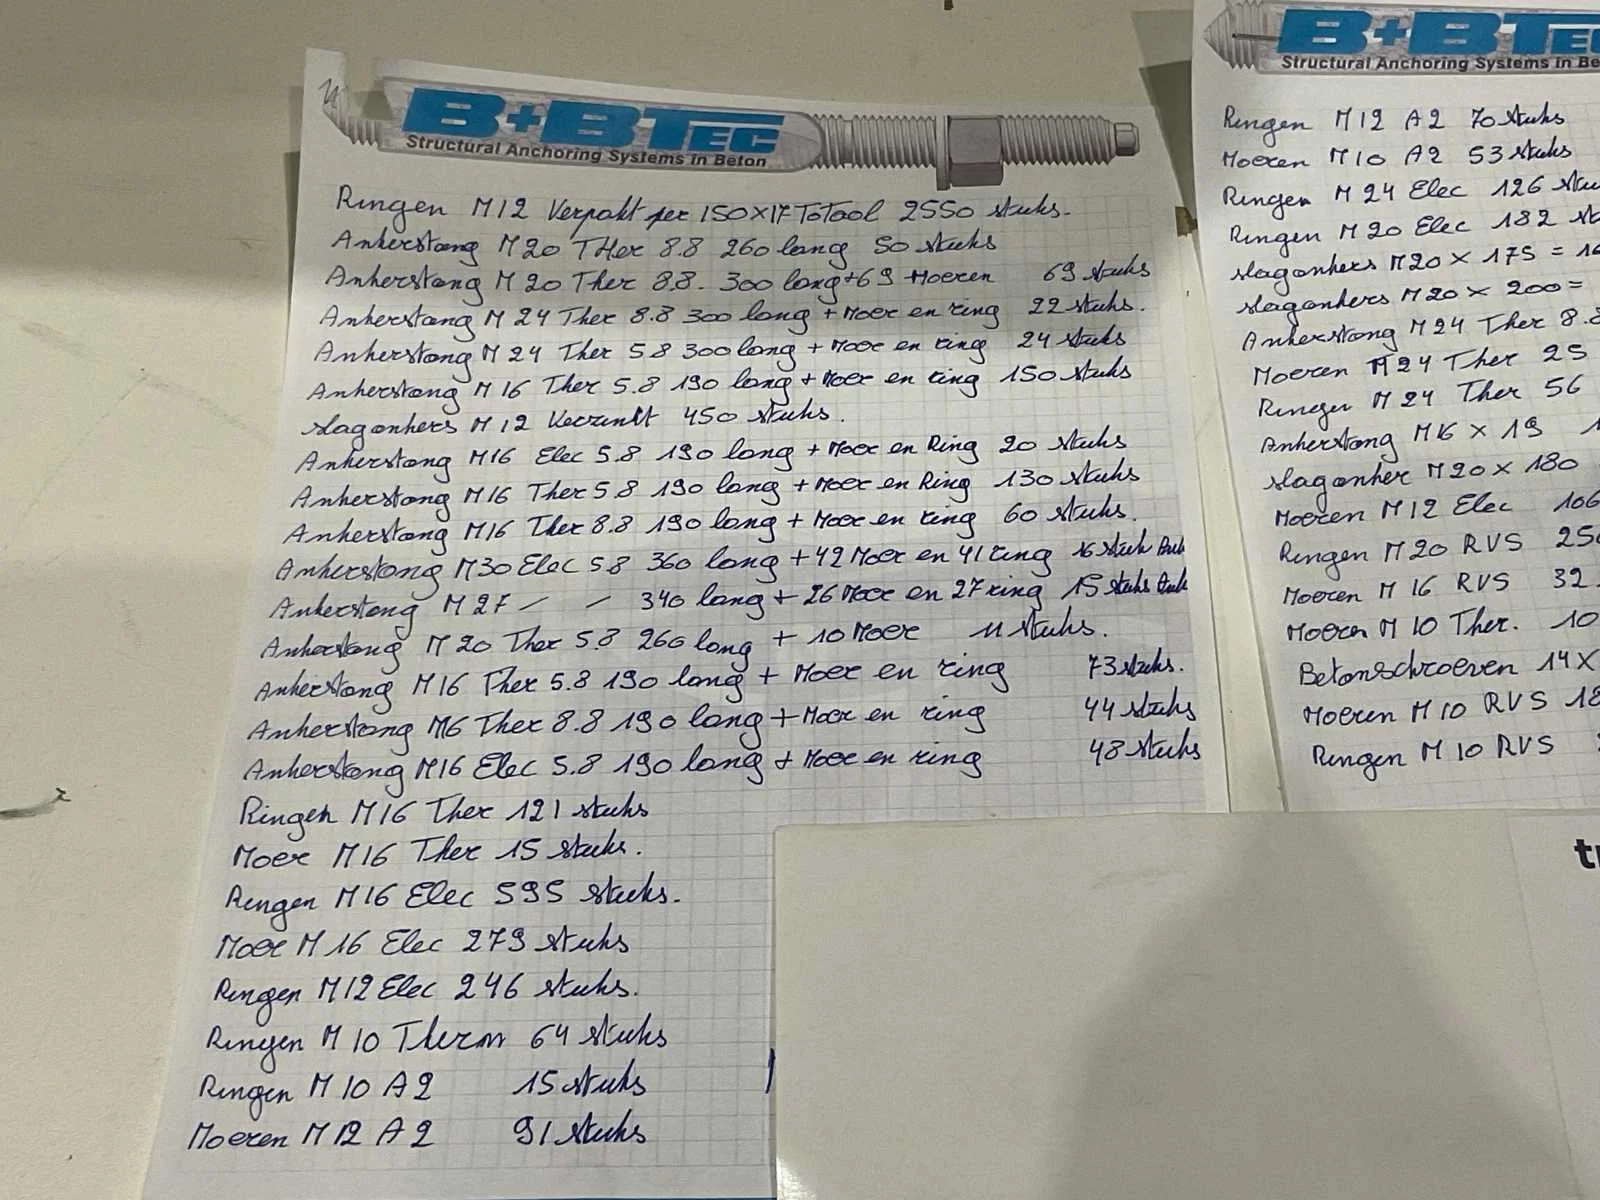 B+BTEC
Structural Anchoring Systems in Beton
Ringen M12 Verpakt per 150x17 ToTaal 2550 stuks.
Ankerstang M20 THer 8.8 260 lang 50 stuks
Ankerstang M20 Ther 8.8. 300 lang+69 Moeren 69 stuks
Ankerstang M24 Ther 8.8 300 lang + Moer en ring 22 stuks.
Ankerstang M24 Ther 5.8 300 lang + Moer en ring 24 stuks
Ankerstang M16 Ther 5.8 190 lang + Moer en ring 150 stuks
slagankers M12 Verzinkt 450 stuks.
Ankerstang M16 Elec 5.8 190 lang + Moer en Ring 20 stuks
Ankerstang M16 Ther 5.8 190 lang + Moer en Ring 130 stuks
Ankerstang M16 Ther 8.8 190 lang + Moer en ring 60 stuks.
Ankerstang M30 Elec 5.8 360 lang + 42 Moer en 41 ring 16 stuk
Ankerstang M27 / / 340 lang + 26 Moer en 27 ring 15 stuks
Ankerstang M20 Ther 5.8 260 lang + 10 Moer 11 stuks.
Ankerstang M16 Ther 5.8 190 lang + Moer en ring 73 stuks.
Ankerstang M6 Ther 8.8 190 lang + Moer en ring 44 stuks
Ankerstang M16 Elec 5.8 190 lang + Moer en ring 48 stuks
Ringen M16 Ther 121 stuks
Moer M16 Ther 15 stuks.
Ringen M16 Elec 595 stuks.
Moer M16 Elec 279 stuks
Ringen M12 Elec 246 stuks.
Ringen M10 Therm 64 stuks
Ringen M10 A2 15 stuks
Moeren M12 A2 91 stuks
B+BTEC
Structural Anchoring Systems in Be
Ringen M12 A2 70 stuks
Moeren M10 A2 53 stuks
Ringen M24 Elec 126 stu
Ringen M20 Elec 182 st
slagankers M20 x 175 = 16
slagankers M20 x 200 =
Ankerstang M24 Ther 8.8
Moeren M24 Ther 25
Ringen M24 Ther 56
Ankerstang M16 x 19
slaganker M20 x 180
Moeren M12 Elec 106
Ringen M20 RVS 250
Moeren M16 RVS 32
Moeren M10 Ther. 10
Betonschroeven 14 x
Moeren M10 RVS 18
Ringen M10 RVS